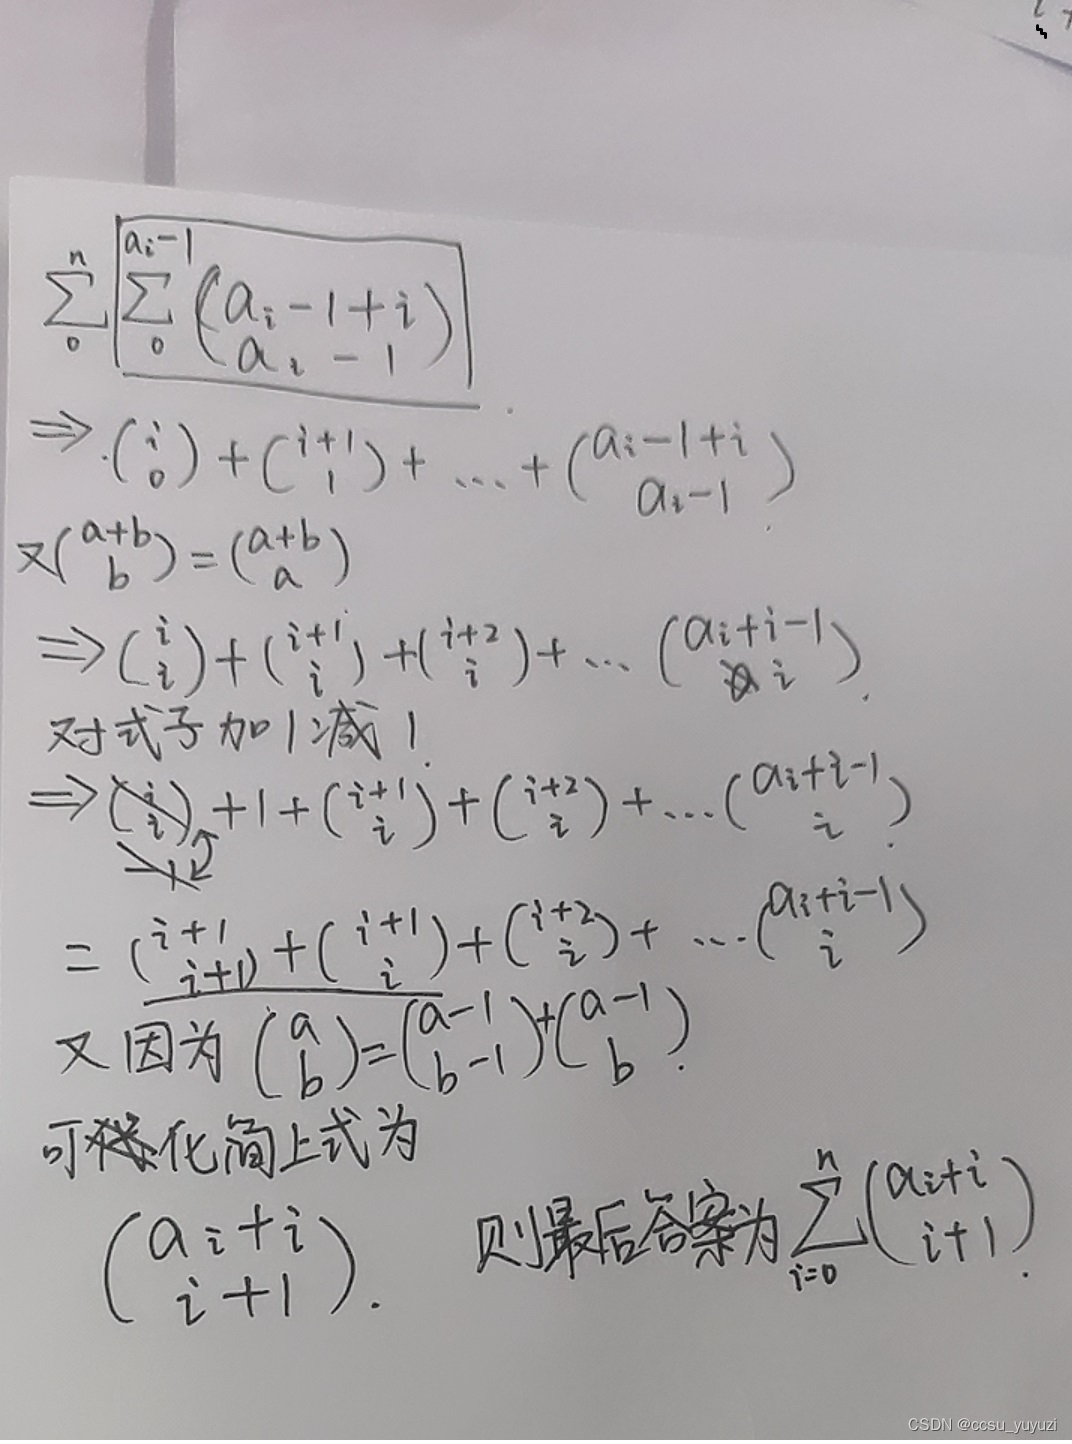 $\sum_{0}^{n} \boxed{\sum_{0}^{a_i-1} \binom{a_i-1+i}{a_i-1}}$
$\Rightarrow \binom{i}{0} + \binom{i+1}{1} + \dots + \binom{a_i-1+i}{a_i-1}$
又$\binom{a+b}{b} = \binom{a+b}{a}$
$\Rightarrow \binom{i}{i} + \binom{i+1}{i} + \binom{i+2}{i} + \dots \binom{a_i+i-1}{i}$
对式子加1减1
$\Rightarrow \binom{i}{i} + 1 + \binom{i+1}{i} + \binom{i+2}{i} + \dots \binom{a_i+i-1}{i}$
$= \binom{i+1}{i+1} + \binom{i+1}{i} + \binom{i+2}{i} + \dots \binom{a_i+i-1}{i}$
又因为 $\binom{a}{b} = \binom{a-1}{b-1} + \binom{a-1}{b}$.
可化简上式为
$\binom{a_i+i}{i+1}$. 则最后答案为 $\sum_{i=0}^{n} \binom{a_i+i}{i+1}$.
CSDN @ccsu_yuyuzi